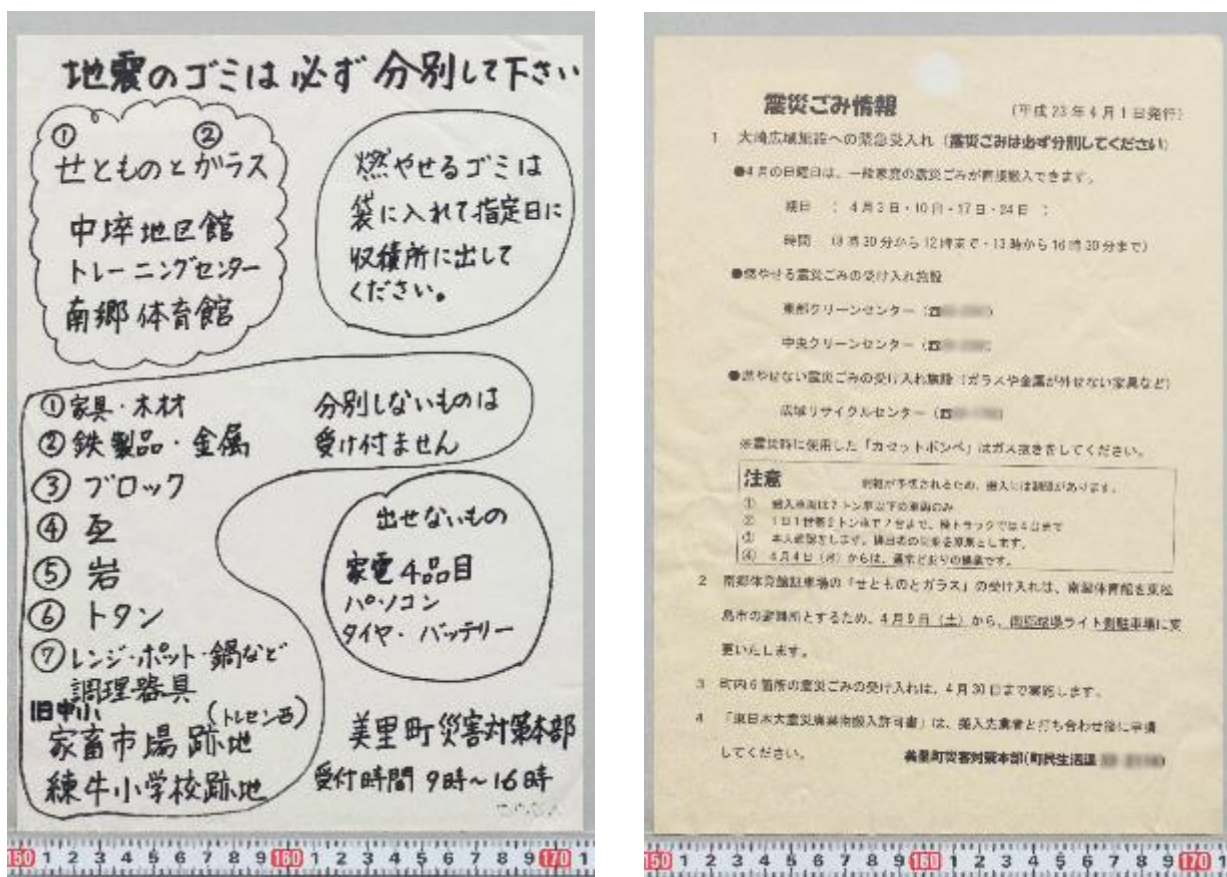 地震のゴミは必ず分別して下さい
① ②
せとものとガラス
中埣地区館
トレーニングセンター
南郷体育館
燃やせるゴミは
袋に入れて指定日に
収積所に出して
ください。
①家具・木材
②鉄製品・金属
③ブロック
④瓦
⑤岩
⑥トタン
⑦レンジ・ポット・鍋など
調理器具
旧中小
(トレセン西)
家畜市場跡地
練牛小学校跡地
分別しないものは
受け付ません
出せないもの
家電4品目
パソコン
タイヤ・バッテリー
美里町災害対策本部
受付時間 9時~16時
震災ごみ情報 (平成23年4月1日発行)
1 大崎広域施設への緊急受入れ(震災ごみは必ず分別してください)
●4月の日曜日は、一般家庭の震災ごみが直接搬入できます。
期日 : 4月3日・10日・17日・24日 :
時間 (8時30分から12時まで・13時から16時30分まで)
●燃やせる震災ごみの受け入れ施設
東部クリーンセンター(☎
中央クリーンセンター(☎
●燃やせない震災ごみの受け入れ施設(ガラスや金属が外せない家具など)
広域リサイクルセンター(☎
※震災時に使用した「カセットボンベ」はガス抜きをしてください。
注意 が予想されるため、搬入には制限があります。
① 搬入車両は2トン車以下の車両のみ
② 1日1世帯2トン車で2台まで、軽トラックでは4台まで
③ 本人確認をします。排出者の同乗を原則とします。
④ 4月4日(月)からは、通常どおりの操業です。
2 南郷体育館駐車場の「せとものとガラス」の受け入れは、南郷体育館を東松
島市の避難所とするため、4月9日(土)から、南郷球場ライト側駐車場に変
更いたします。
3 町内6箇所の震災ごみの受け入れは、4月30日まで実施します。
4 「東日本大震災廃棄物搬入許可書」は、搬入先業者と打ち合わせ後に申請
してください。 美里町災害対策本部(町民生活課
150 1 2 3 4 5 6 7 8 9 160 1 2 3 4 5 6 7 8 9 170 1
150 1 2 3 4 5 6 7 8 9 160 1 2 3 4 5 6 7 8 9 170 1